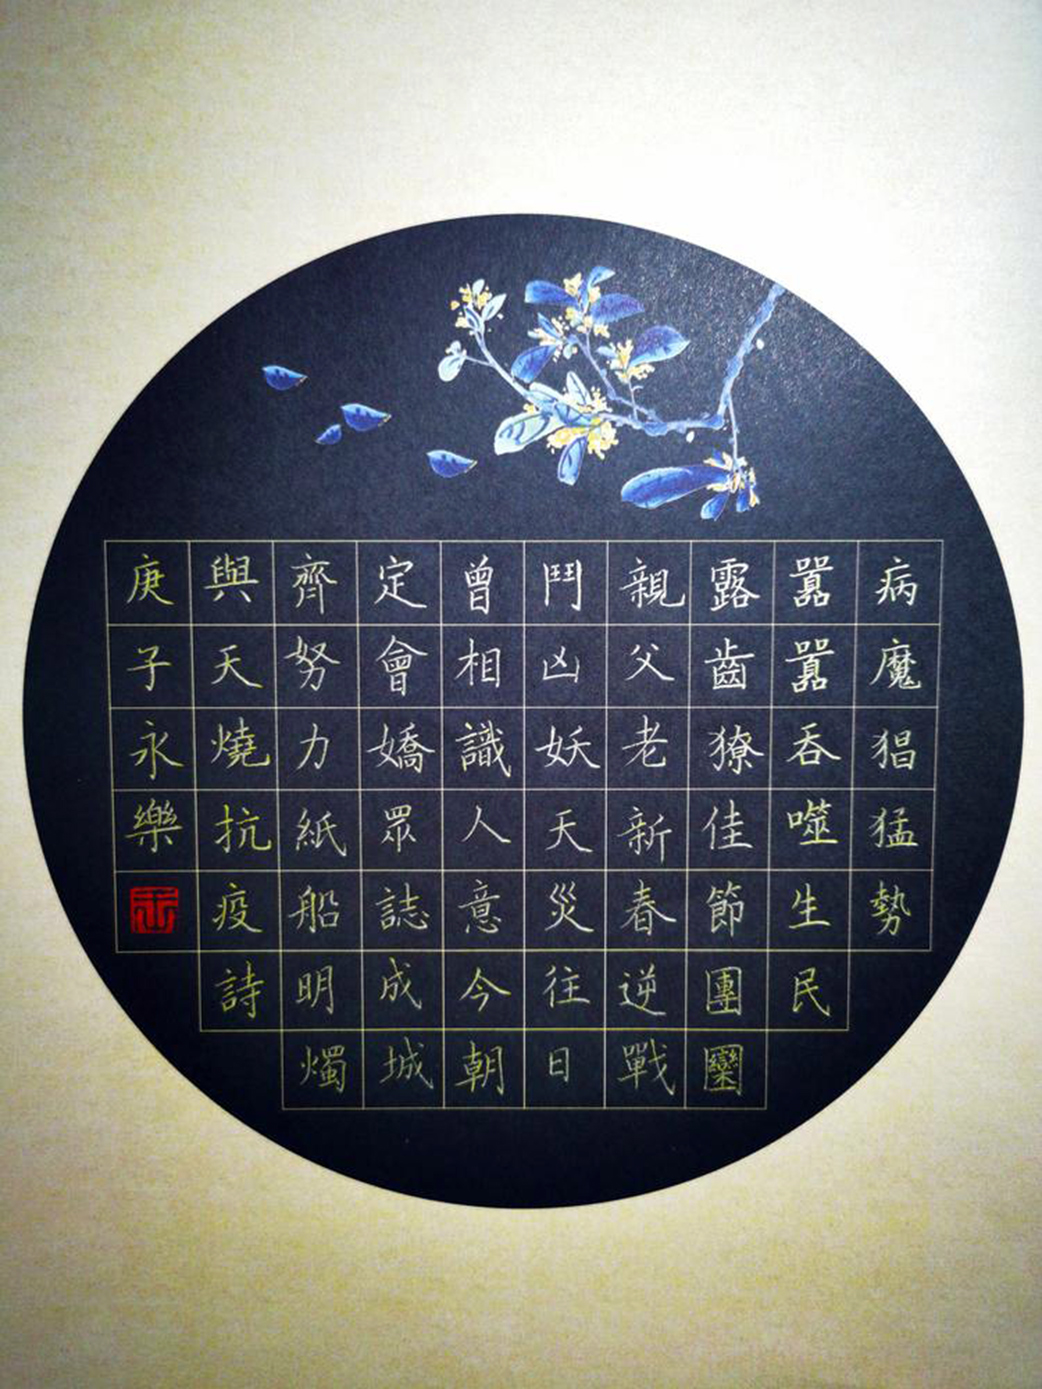 病魔猖猛勢
囂囂吞噬生民
露齒獠佳節團圞
親父老新春逆戰
鬥凶妖天災往日
曾相識人意今朝
定會嬌眾誌成城
齊努力紙船明燭
與天燒抗疫詩
庚子永樂